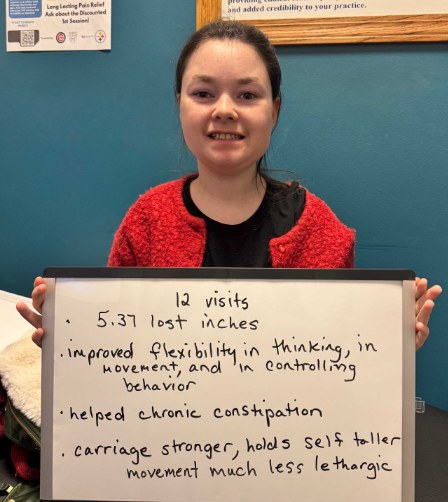 Long Lasting Pain Relief
Ask about the Discounted
1st Session!
and added credibility to your practice.
12 visits
· 5.37 lost inches
· improved flexibility in thinking, in
movement, and in controlling
behavior
· helped chronic constipation
· carriage stronger, holds self taller
movement much less lethargic